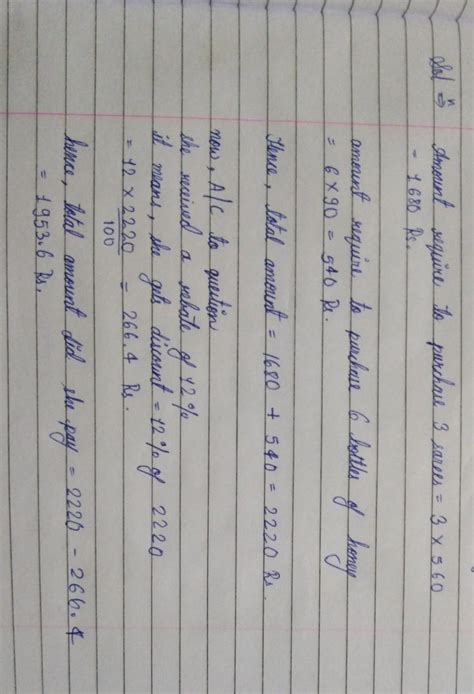 Solⁿ ⇒ Amount require to purchase 3 sarees = 3 × 560
= 1680 Rs.
amount require to purchase 6 bottles of honey
= 6 × 90 = 540 Rs.
Hence, total amount = 1680 + 540 = 2220 Rs.
now, A/C to question
she recived a rebate of 12%
it means, she gets discount = 12% of 2220
= 12 × 2220 / 100 = 266.4 Rs.
hence, total amount did she pay = 2220 - 266.4
= 1953.6 Rs.